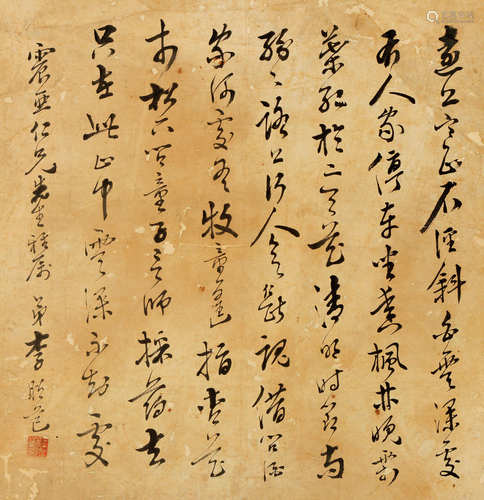 遠上寒山石徑斜白雲深處
有人家停車坐愛楓林晚霜
葉紅於二月花清明時節雨
紛〻路上行人欲斷魂借問酒
家何處有牧童遙指杏花
村松下問童子言師採葯去
只在此山中雲深不知處
震亞仁兄先生雅屬 弟李